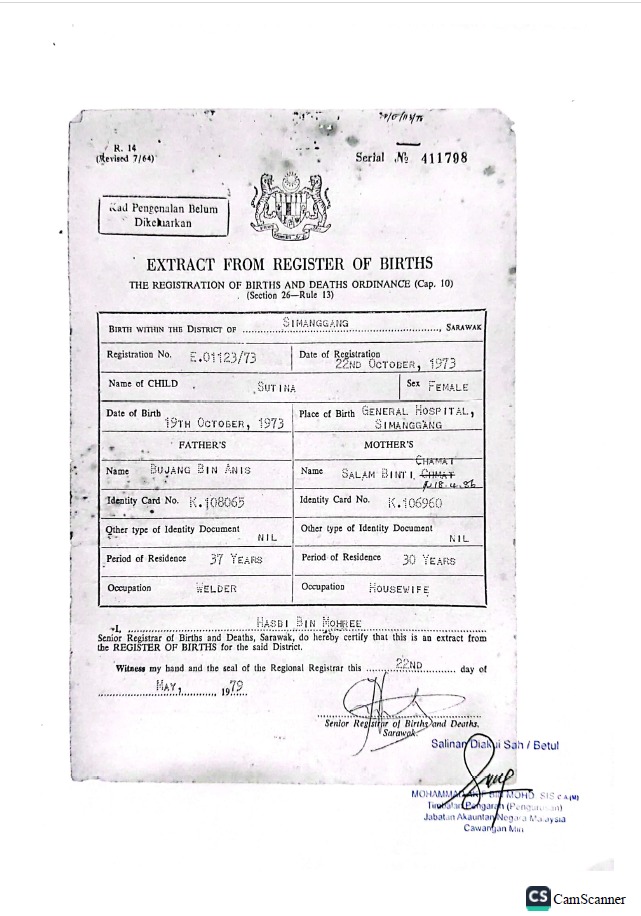 R. 14
(Revised 7/64)
Serial № 411798
Kad Pengenalan Belum
Dikeluarkan
EXTRACT FROM REGISTER OF BIRTHS
THE REGISTRATION OF BIRTHS AND DEATHS ORDINANCE (Cap. 10)
(Section 26—Rule 13)
BIRTH WITHIN THE DISTRICT OF SIMANGGANG, SARAWAK
Registration No. E.01123/73
Date of Registration
22ND OCTOBER, 1973
Name of CHILD SUTINA
Sex FEMALE
Date of Birth
19TH OCTOBER, 1973
Place of Birth GENERAL HOSPITAL,
SIMANGGANG
FATHER'S
MOTHER'S
Name BUJANG BIN ANIS
CHAMAT
Name SALAM BINTI
18.4.86
Identity Card No. K.108065
Identity Card No. K.106960
Other type of Identity Document
NIL
Other type of Identity Document
NIL
Period of Residence 37 YEARS
Period of Residence 30 YEARS
Occupation WELDER
Occupation HOUSEWIFE
*I, HASBI BIN MOHREE
Senior Registrar of Births and Deaths, Sarawak, do hereby certify that this is an extract from
the REGISTER OF BIRTHS for the said District.
Witness my hand and the seal of the Regional Registrar this 22ND day of
MAY, 1979
Senior Registrar of Births and Deaths,
Sarawak.
Salinan Diakui Sah / Betul
MOHAMMAD BIN MOHD. SIS C.A.(M)
Timbalan Pengarah (Pengurusan)
Jabatan Akauntan Negara Malaysia
Cawangan Miri
CS CamScanner